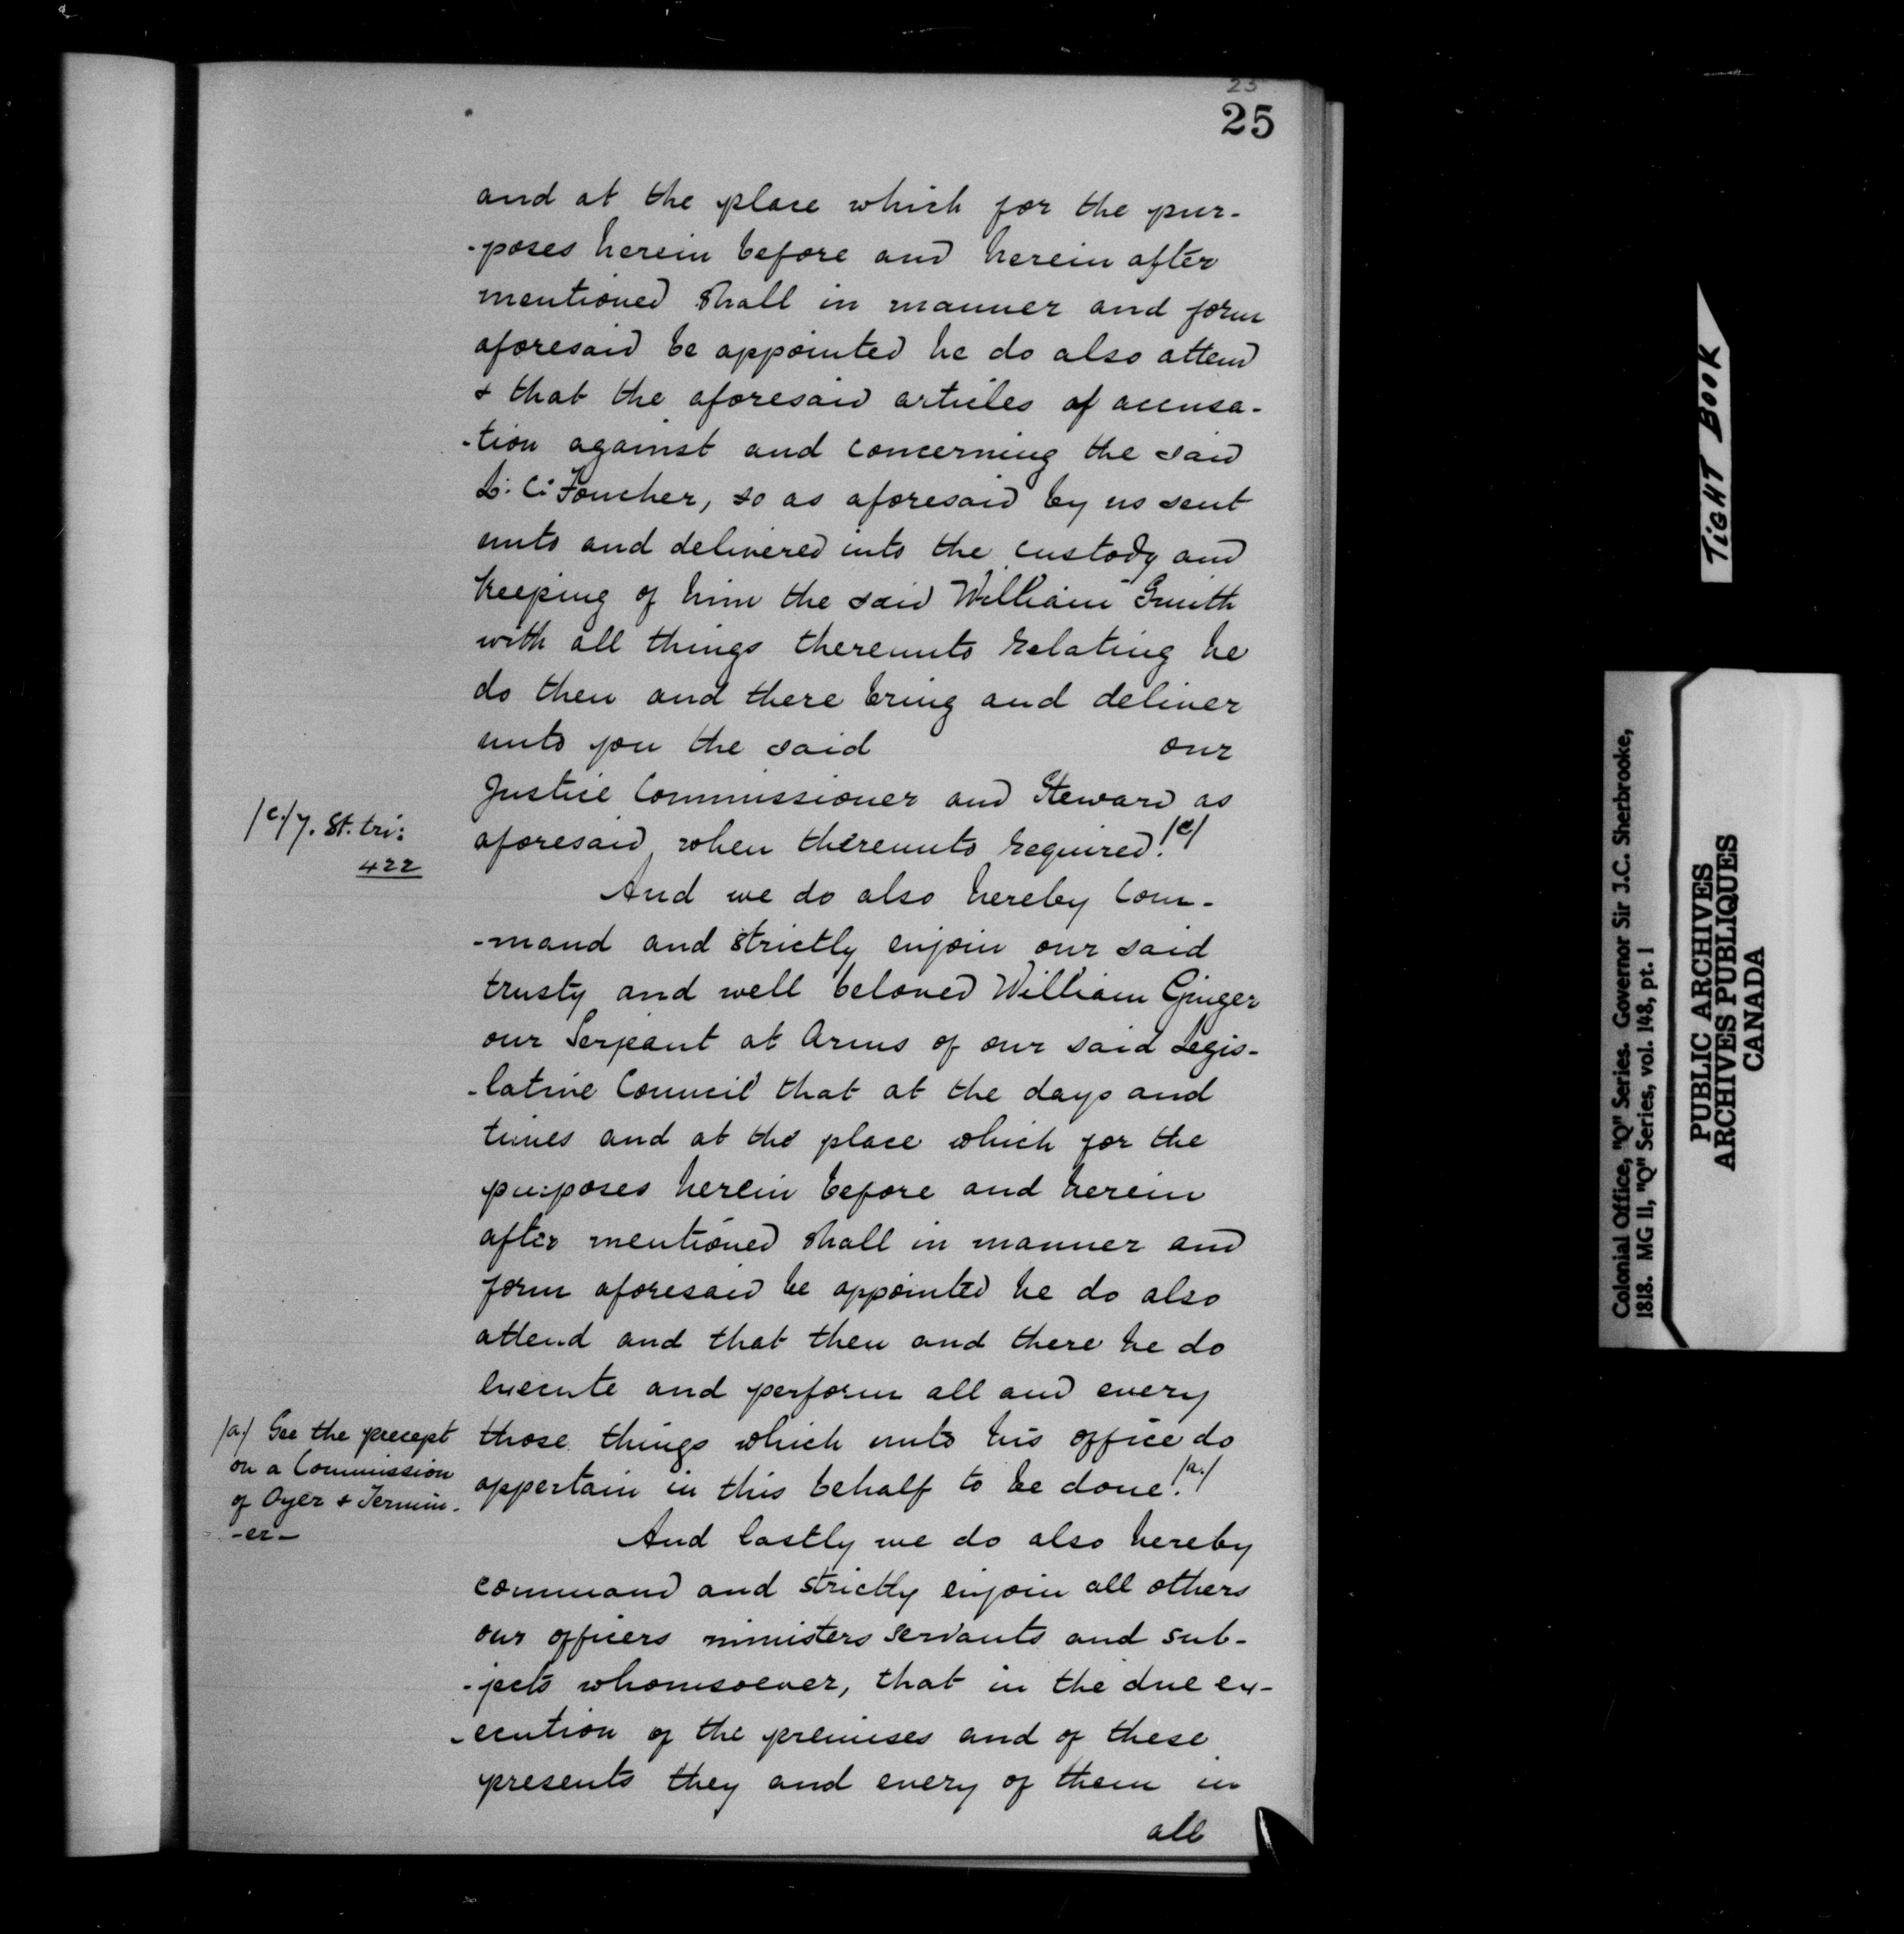 25
25
and at the place which for the pur-
-poses herein before and herein after
mentioned shall in manner and form
aforesaid be appointed he do also attend
& that the aforesaid articles of accusa-
-tion against and concerning the said
L: C: Foucher, so as aforesaid by us sent
unto and delivered into the custody and
keeping of him the said William Smith
with all things thereunto relating he
do then and there bring and deliver
unto you the said our
Justice Commissioner and Steward as
aforesaid, when thereunto required. /e/
/e./ 7. St. tri:
422
And we do also hereby com-
-mand and strictly enjoin our said
trusty and well beloved William Ginger
our Serjeant at Arms of our said Legis-
-lative Council that at the days and
times and at the place which for the
purposes herein before and herein
after mentioned shall in manner and
form aforesaid be appointed he do also
attend and that then and there he do
execute and perform all and every
those things which unto his office do
appertain in this behalf to be done. /a./
/a/ See the precept
on a Commission
of Oyer & Termin-
-er-
And lastly we do also hereby
command and strictly enjoin all others
our officers ministers servants and sub-
-jects whomsoever, that in the due ex-
-ecution of the premises and of these
presents they and every of them in
all
TIGHT BOOK
Colonial Office, "Q" Series. Governor Sir J.C. Sherbrooke,
1818. MG 11, "Q" Series, vol. 148, pt. 1
PUBLIC ARCHIVES
ARCHIVES PUBLIQUES
CANADA